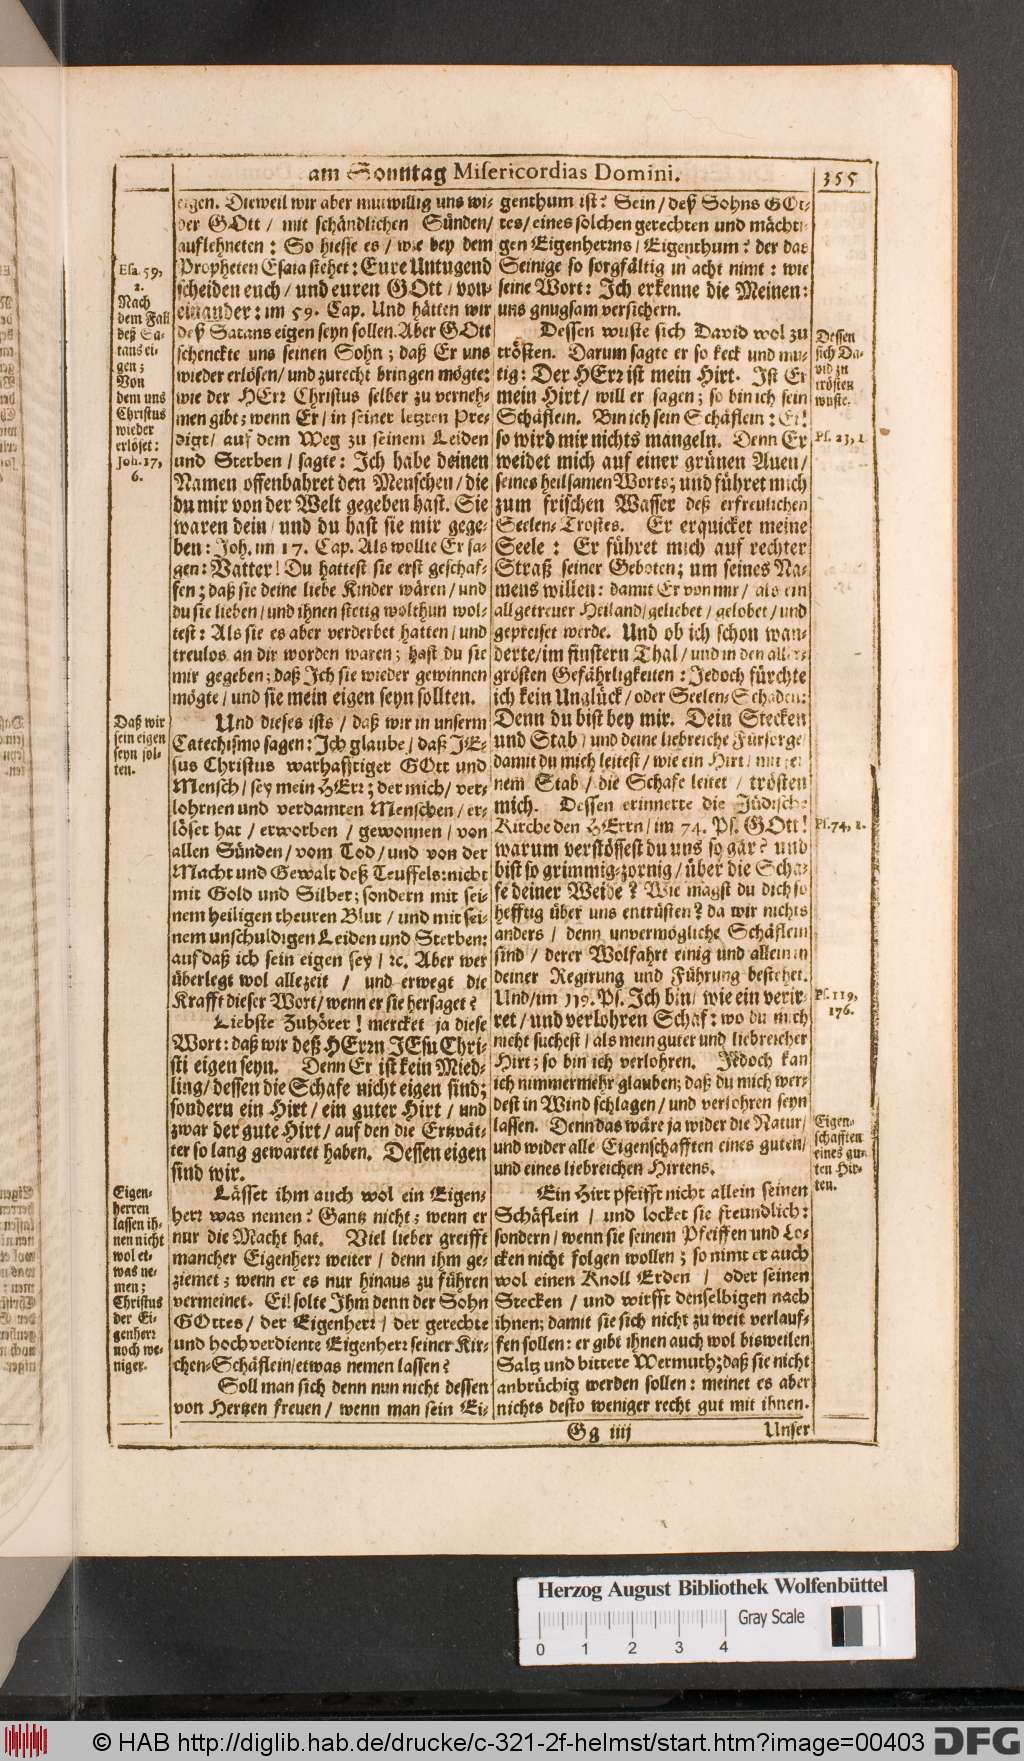 am Sonntag Misericordias Domini.
355
eigen. Dieweil wir aber mutwillig uns wi-
der GOtt / mit schändlichen Sünden /
auflehneten : So hiesse es / wie bey dem
Propheten Esaia stehet : Eure Untugend
scheiden euch / und euren GOtt / von-
einander : im 59. Cap. Und hätten wir
deß Satans eigen seyn sollen. Aber GOtt
schenckte uns seinen Sohn ; daß Er uns
wieder erlösen / und zurecht bringen mögte :
wie der HErr Christus selber zu verneh-
men gibt ; wenn Er / in seiner letzten Pre-
digt / auf dem Weg zu seinem Leiden
und Sterben / sagte : Ich habe deinen
Namen offenbahret den Menschen / die
du mir von der Welt gegeben hast. Sie
waren dein / und du hast sie mir gege-
ben : Joh. im 17. Cap. Als wollte Er sa-
gen : Vatter ! Du hattest sie erst geschaf-
fen ; daß sie deine liebe Kinder wären / und
du sie lieben / und ihnen stetig wolthun wol-
test : Als sie es aber verderbet hatten / und
treulos an dir worden waren ; hast du sie
mir gegeben ; daß Ich sie wieder gewinnen
mögte / und sie mein eigen seyn sollten.
Und dieses ists / daß wir in unserm
Catechismo sagen : Ich glaube / daß JE-
sus Christus warhafftiger GOtt und
Mensch / sey mein HErr ; der mich / ver-
lohrnen und verdamten Menschen / er-
löset hat / erworben / gewonnen / von
allen Sünden / vom Tod / und von der
Macht und Gewalt deß Teuffels : nicht
mit Gold und Silber ; sondern mit sei-
nem heiligen theuren Blut / und mit sei-
nem unschuldigen Leiden und Sterben :
auf daß ich sein eigen sey / ꝛc. Aber wer
überlegt wol allezeit / und erwegt die
Krafft dieser Wort / wenn er sie hersaget ?
Liebste Zuhörer ! mercket ja diese
Wort : daß wir deß HErrn JEsu Chri-
sti eigen seyn. Denn Er ist kein Mied-
ling / dessen die Schafe nicht eigen sind ;
sondern ein Hirt / ein guter Hirt / und
zwar der gute Hirt / auf den die Ertzvät-
ter so lang gewartet haben. Dessen eigen
sind wir.
Lässet ihm auch wol ein Eigen-
herr was nemen ? Gantz nicht ; wenn er
nur die Macht hat. Viel lieber greifft
mancher Eigenherr weiter / denn ihm ge-
ziemet ; wenn er es nur hinaus zu führen
vermeinet. Ei ! solte Ihm denn der Sohn
GOttes / der Eigenherr / der gerechte
und hochverdiente Eigenherr seiner Kir-
chen-Schäflein / etwas nemen lassen ?
Soll man sich denn nun nicht dessen
von Hertzen freuen / wenn man sein Ei-
genthum ist ? Sein / deß Sohns GOt-
tes / eines solchen gerechten und mächti-
gen Eigenherrns / Eigenthum ? der das
Seinige so sorgfältig in acht nimt : wie
seine Wort : Ich erkenne die Meinen :
uns gnugsam versichern.
Dessen wuste sich David wol zu
trösten. Darum sagte er so keck und mu-
tig : Der HErr ist mein Hirt. Ist Er
mein Hirt / will er sagen ; so bin ich sein
Schäflein. Bin ich sein Schäflein : Ei !
so wird mir nichts mangeln. Denn Er
weidet mich auf einer grünen Auen /
seines heilsamen Worts ; und führet mich
zum frischen Wasser deß erfreulichen
Seelen-Trostes. Er erquicket meine
Seele : Er führet mich auf rechter
Straß seiner Geboten ; um seines Na-
mens willen : damit Er von mir / als ein
allgetreuer Heiland / geliebet / gelobet / und
gepreiset werde. Und ob ich schon wan-
derte / im finstern Thal / und in den aller-
grösten Gefährligkeiten : Jedoch fürchte
ich kein Unglück / oder Seelen-Schaden :
Denn du bist bey mir. Dein Stecken
und Stab / und deine liebreiche Fürsorge /
damit du mich leitest / wie ein Hirt / mit sei-
nem Stab / die Schafe leitet / trösten
mich. Dessen erinnerte die Jüdische
Kirche den HErrn / im 74. Ps. GOtt !
warum verstössest du uns so gar ? und
bist so grimmig-zornig / über die Scha-
fe deiner Weide ? Wie magst du dich so
hefftig über uns entrüsten ? da wir nichts
anders / denn unvermögliche Schäflein
sind / derer Wolfahrt einig und allein in
deiner Regirung und Führung bestehet.
Und / im 119. Ps. Ich bin / wie ein verir-
ret / und verlohren Schaf : wo du mich
nicht suchest / als mein guter und liebreicher
Hirt ; so bin ich verlohren. Jedoch kan
ich nimmermehr glauben ; daß du mich wer-
dest in Wind schlagen / und verlohren seyn
lassen. Denn das wäre ja wider die Natur /
und wider alle Eigenschafften eines guten /
und eines liebreichen Hirtens.
Ein Hirt pfeifft nicht allein seinen
Schäflein / und locket sie freundlich :
sondern / wenn sie seinem Pfeiffen und Lo-
cken nicht folgen wollen ; so nimt er auch
wol einen Knoll Erden / oder seinen
Stecken / und wirfft denselbigen nach
ihnen ; damit sie sich nicht zu weit verlauf-
fen sollen : er gibt ihnen auch wol bisweilen
Saltz und bittere Wermuth ; daß sie nicht
anbrüchig werden sollen : meinet es aber
nichts desto weniger recht gut mit ihnen.
Gg iiij
Unser
Esa. 59,
2.
Nach
dem Fall
deß Sa-
tans ei-
gen ;
Von
dem uns
Christus
wieder
erlöset :
Joh. 17,
6.
Daß wir
sein eigen
seyn sol-
ten.
Eigen-
herren
lassen ih-
nen nicht
wol et-
was ne-
men ;
Christus
der Ei-
genherr
noch we-
niger.
Dessen
sich Da-
vid zu
trösten
wuste.
Ps. 23, 1.
Ps. 74, 1.
Ps. 119,
176.
Eigen-
schafften
eines gu-
ten Hir-
ten.
Herzog August Bibliothek Wolfenbüttel
Gray Scale
0 1 2 3 4
© HAB http://diglib.hab.de/drucke/c-321-2f-helmst/start.htm?image=00403
DFG